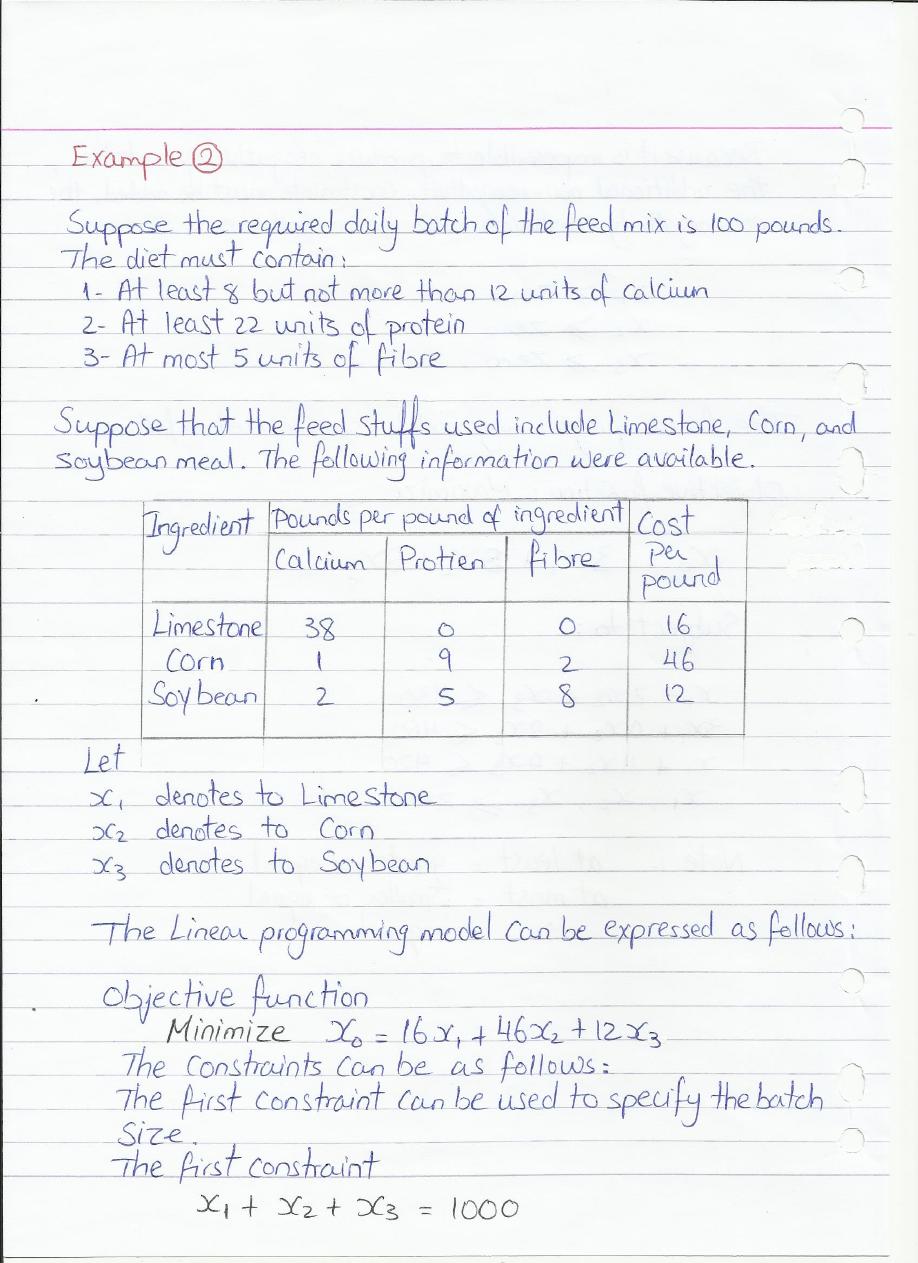 Example ②
Suppose the required daily batch of the feed mix is 100 pounds.
The diet must contain:
1- At least 8 but not more than 12 units of calcium
2- At least 22 units of protein
3- At most 5 units of fibre
Suppose that the feed stuffs used include Limestone, Corn, and
Soybean meal. The following information were available.
Ingredient Pounds per pound of ingredient Cost per pound
Calcium Protien fibre
Limestone 38 0 0 16
Corn 1 9 2 46
Soybean 2 5 8 12
Let
x₁ denotes to Limestone
x₂ denotes to Corn
x₃ denotes to Soybean
The Linear programming model can be expressed as follows:
Objective function
Minimize x₀ = 16x₁ + 46x₂ + 12x₃
The constraints can be as follows:
The first constraint can be used to specify the batch
Size.
The first constraint
x₁ + x₂ + x₃ = 1000